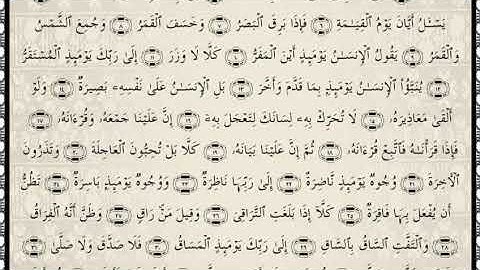 يَسْـَٔلُ أَيَّانَ يَوْمُ ٱلْقِيَـٰمَةِ ۝٦ فَإِذَا بَرِقَ ٱلْبَصَرُ ۝٧ وَخَسَفَ ٱلْقَمَرُ ۝٨ وَجُمِعَ ٱلشَّمْسُ
وَٱلْقَمَرُ ۝٩ يَقُولُ ٱلْإِنسَـٰنُ يَوْمَئِذٍ أَيْنَ ٱلْمَفَرُّ ۝١٠ كَلَّا لَا وَزَرَ ۝١١ إِلَىٰ رَبِّكَ يَوْمَئِذٍ ٱلْمُسْتَقَرُّ
۝١٢ يُنَبَّؤُا۟ ٱلْإِنسَـٰنُ يَوْمَئِذٍۭ بِمَا قَدَّمَ وَأَخَّرَ ۝١٣ بَلِ ٱلْإِنسَـٰنُ عَلَىٰ نَفْسِهِۦ بَصِيرَةٌ ۝١٤ وَلَوْ
أَلْقَىٰ مَعَاذِيرَهُۥ ۝١٥ لَا تُحَرِّكْ بِهِۦ لِسَانَكَ لِتَعْجَلَ بِهِۦٓ ۝١٦ إِنَّ عَلَيْنَا جَمْعَهُۥ وَقُرْءَانَهُۥ ۝١٧
فَإِذَا قَرَأْنَـٰهُ فَٱتَّبِعْ قُرْءَانَهُۥ ۝١٨ ثُمَّ إِنَّ عَلَيْنَا بَيَانَهُۥ ۝١٩ كَلَّا بَلْ تُحِبُّونَ ٱلْعَاجِلَةَ ۝٢٠ وَتَذَرُونَ
ٱلْـَٔاخِرَةَ ۝٢١ وُجُوهٌ يَوْمَئِذٍ نَّاضِرَةٌ ۝٢٢ إِلَىٰ رَبِّهَا نَاظِرَةٌ ۝٢٣ وَوُجُوهٌ يَوْمَئِذٍۭ بَاسِرَةٌ ۝٢٤ تَظُنُّ
أَن يُفْعَلَ بِهَا فَاقِرَةٌ ۝٢٥ كَلَّآ إِذَا بَلَغَتِ ٱلتَّرَاقِىَ ۝٢٦ وَقِيلَ مَنْ رَاقٍ ۝٢٧ وَظَنَّ أَنَّهُ ٱلْفِرَاقُ
۝٢٨ وَٱلْتَفَّتِ ٱلسَّاقُ بِٱلسَّاقِ ۝٢٩ إِلَىٰ رَبِّكَ يَوْمَئِذٍ ٱلْمَسَاقُ ۝٣٠ فَلَا صَدَّقَ وَلَا صَلَّىٰ ۝٣١